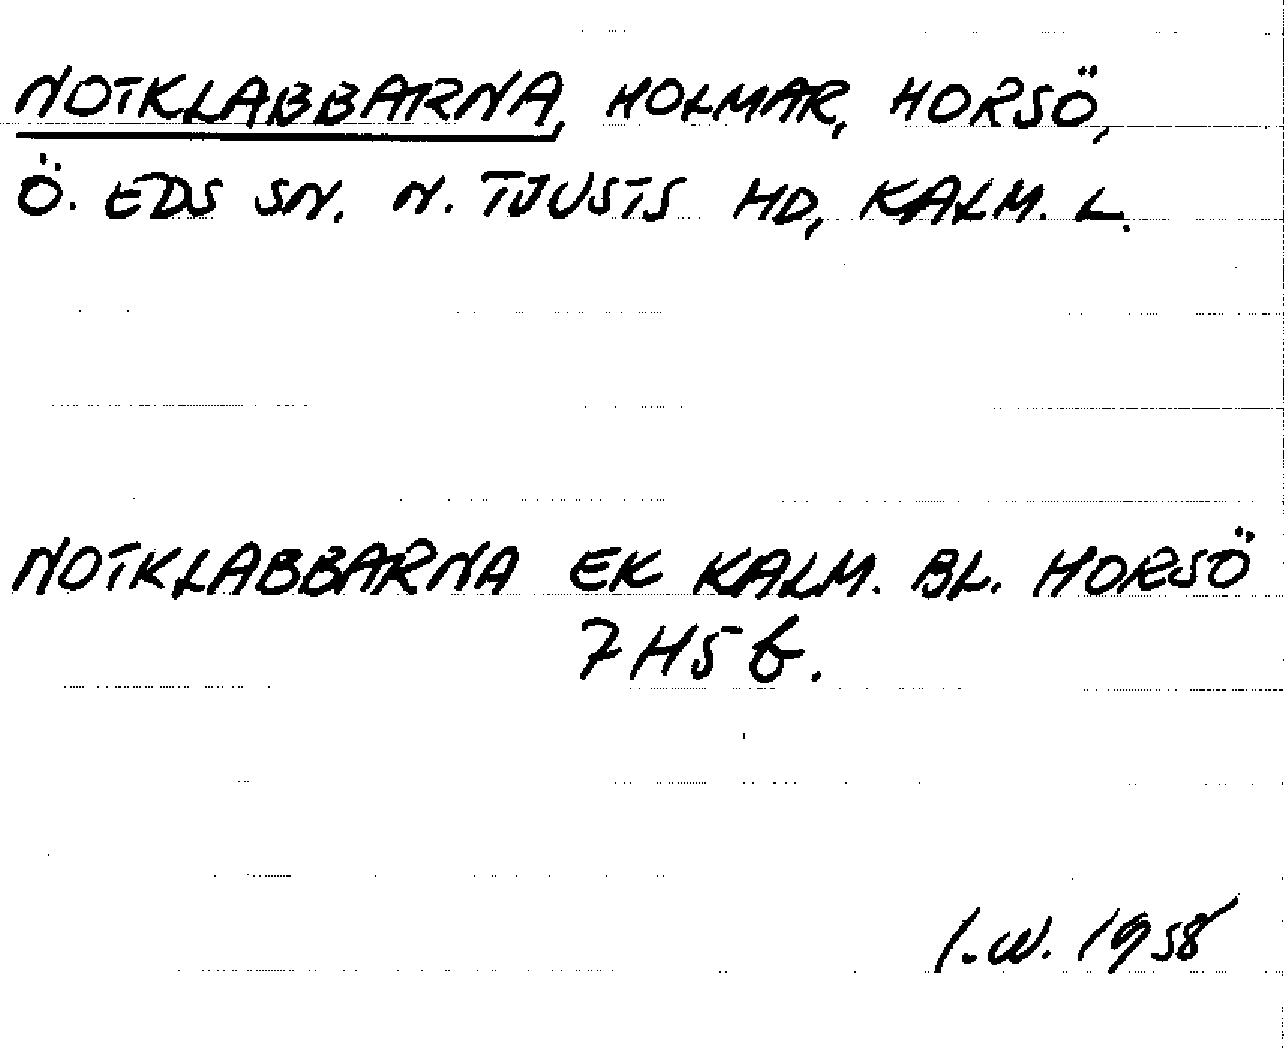 NOTKLABBARNA, HOLMAR, HORSÖ,
Ö. EDS SN. N. TJUSTS HD, KALM. L.
NOTKLABBARNA EK KALM. BL. HORSÖ
7H5f.
I.W. 1958